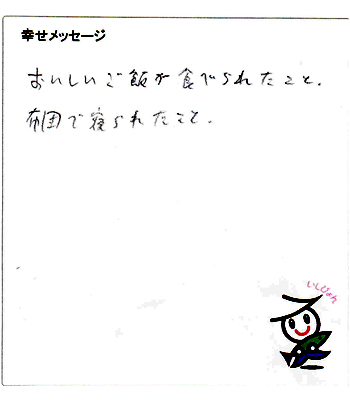 幸せメッセージ
おいしいご飯が食べられたこと.
布団で寝られたこと.